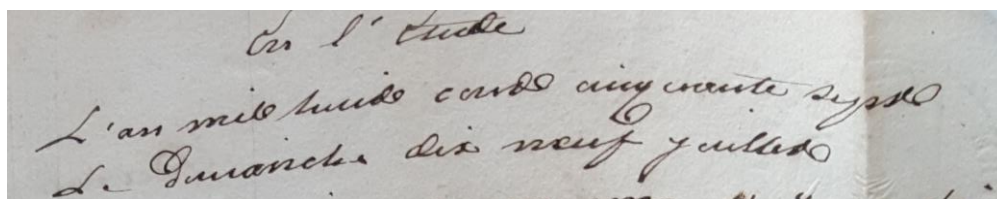 En l'étude
L'an mil huit cent cinquante sept
Le Dimanche dix neuf juillet